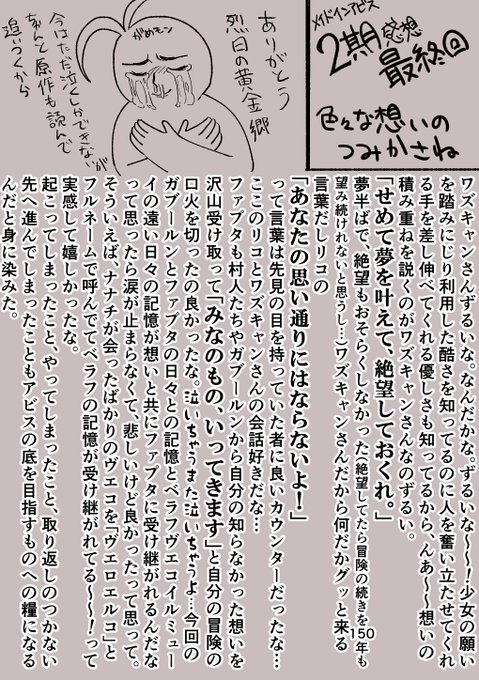 メイドインアビス
2期感想
最終回
色々な想いの
つみかさね
がめモン
ありがとう
烈日の黄金郷
今はただ泣くしかできないが
きちんと原作も読んで
追いつくから
ワズキャンさんずるいな。なんだかな。ずるいな〜〜！少女の願い
を踏みにじり利用した酷さを知ってるのに人を奮い立たせてくれ
る手を差し伸べてくれる優しさも知ってるから、んあ〜〜想いの
積み重ねを説くのがワズキャンさんなのずるい。
「せめて夢を叶えて、絶望しておくれ。」
夢半ばで、絶望もおそらくしなかった（絶望してたら冒険の続きを150年も
望み続けれないと思うし…）ワズキャンさんだから何だかグッと来る
言葉だしリコの
「あなたの思い通りにはならないよ！」
って言葉は先見の目を持っていた者に良いカウンターだったな…
ここのリコとワズキャンさんの会話好きだな…
ファプタも村人たちやガブールンから自分の知らなかった想いを
沢山受け取って「みなのもの、いってきます」と自分の冒険の
口火を切ったの良かったな。泣いちゃうまた泣いちゃうよ…今回の
ガブールンとファプタの日々との記憶とベラフヴエコイルミュー
イの遠い日々の記憶が想いと共にファプタに受け継がれるんだな
って思ったら涙が止まらなくて、悲しいけど良かったって思って。
そういえば、ナナチが会ったばかりのヴエコを「ヴエロエルコ」と
フルネームで呼んでてベラフの記憶が受け継がれてる〜〜！って
実感して嬉しかったな。
起こってしまったこと、やってしまったこと、取り返しのつかない
先へ進んでしまったこともアビスの底を目指すものへの糧になる
んだと身に染みた。